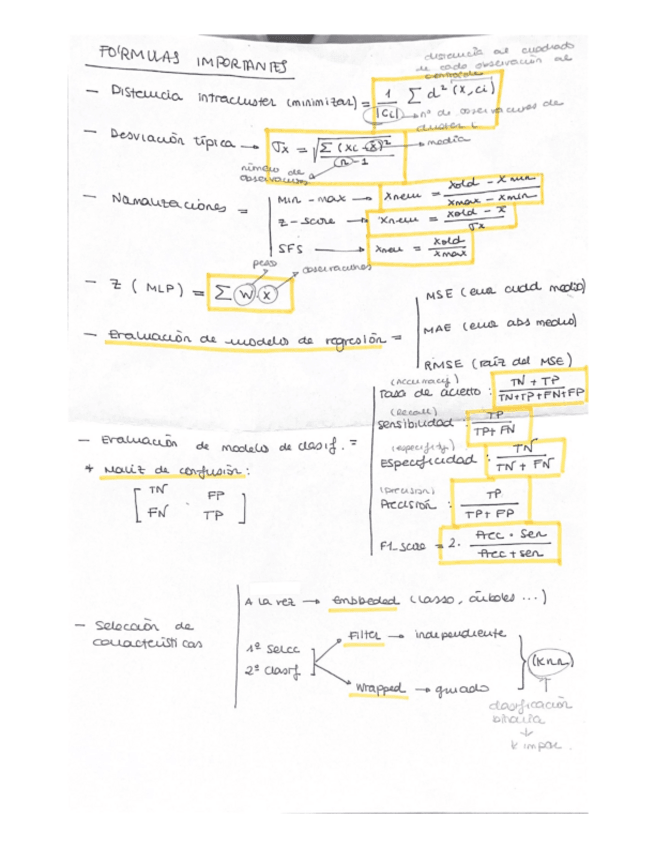 FÓRMULAS IMPORTANTES
distancia al cuadrado
de cada observación al
centroide
- Distancia intracluster (minimizar) = 1/|Ci| Σ d² (x, ci)
nº de observaciones de
cluster i
- Desviación típica → σx = √(Σ (xi - x̄)² / (n - 1))
media
número de
observaciones
- Normalizaciones =
Min-max → Xnew = (xold - xmin) / (xmax - xmin)
z-score → Xnew = (xold - x̄) / σx
SFS → Xnew = xold / xmax
peso
observaciones
- Z (MLP) = Σ w x
MSE (error cuad medio)
MAE (error abs medio)
- Evaluación de modelos de regresión =
RMSE (raíz del MSE)
(Accuracy)
Tasa de acierto : (TN + TP) / (TN+TP+FN+FP)
(Recall)
Sensibilidad : TP / (TP+ FN)
- Evaluación de modelo de clasif. =
(especifity)
Especificidad : TN / (TN + FN)
* Matriz de confusión:
[TN FP
FN TP]
(precision)
Precisión : TP / (TP+ FP)
F1_score = 2 · (Prec · Sen) / (Prec + sen)
- Selección de
características
A la vez → Embbeded (Lasso, árboles ...)
1º Selecc
2º Clasif
Filter → independiente
Wrapped → guiado
(Knn)
clasificación
binaria
↓
k impar.